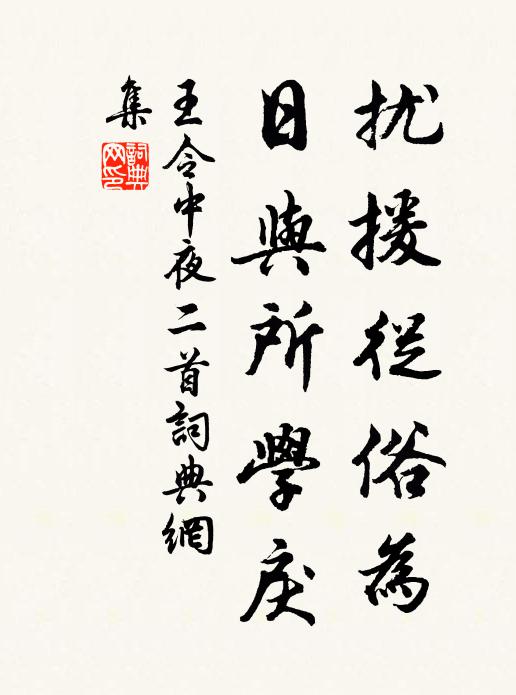 扰援從俗為
日與所學戾
王令中夜二首詞典網
集
詞典网印